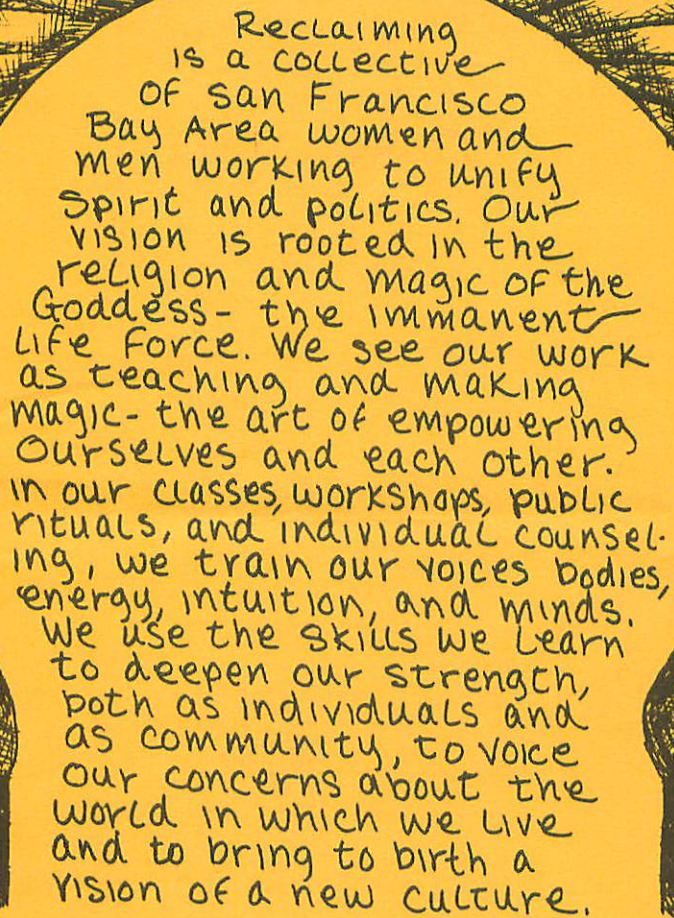 Reclaiming
is a collective
of San Francisco
Bay Area women and
men working to unify
spirit and politics. Our
vision is rooted in the
religion and magic of the
Goddess- the immanent
Life Force. We see our work
as teaching and making
magic- the art of empowering
ourselves and each other.
in our classes, workshops, public
rituals, and individual counsel-
ing, we train our voices bodies,
energy, intuition, and minds.
We use the skills we learn
to deepen our strength,
both as individuals and
as community, to voice
our concerns about the
world in which we live
and to bring to birth a
vision of a new culture.